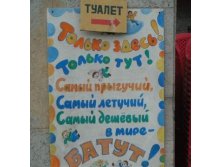 ТУАЛЕТ
Только здесь!
Только тут!
Самый прыгучий,
Самый летучий,
Самый дешевый
в мире-
БАТУТ!